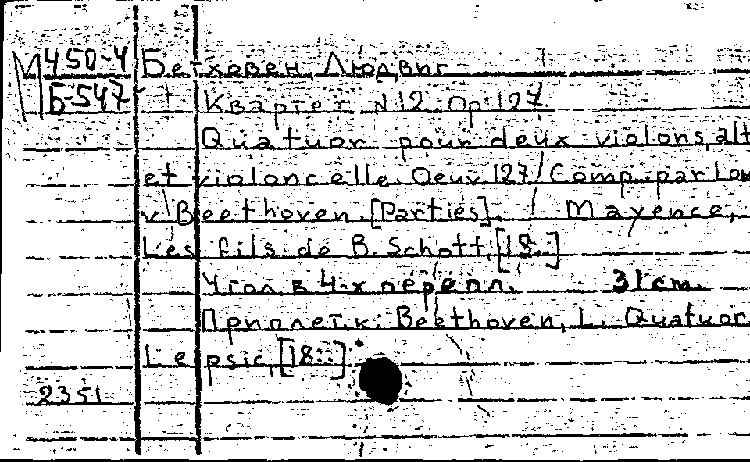 М 450-4 Бетховен, Людвиг
Б-547 Квартет N12. Op. 127
Quatuor pour deux violons, alt
et violoncelle. Oeuv. 127 / Comp. par Lou
v. Beethoven. [Parties]. Mayence,
Les fils de B. Schott, [18..]
Угол. в 4-х перепл. 31 cm.
Приплет. к: Beethoven, L. Quatuor
Lepsic, [18..].
2351